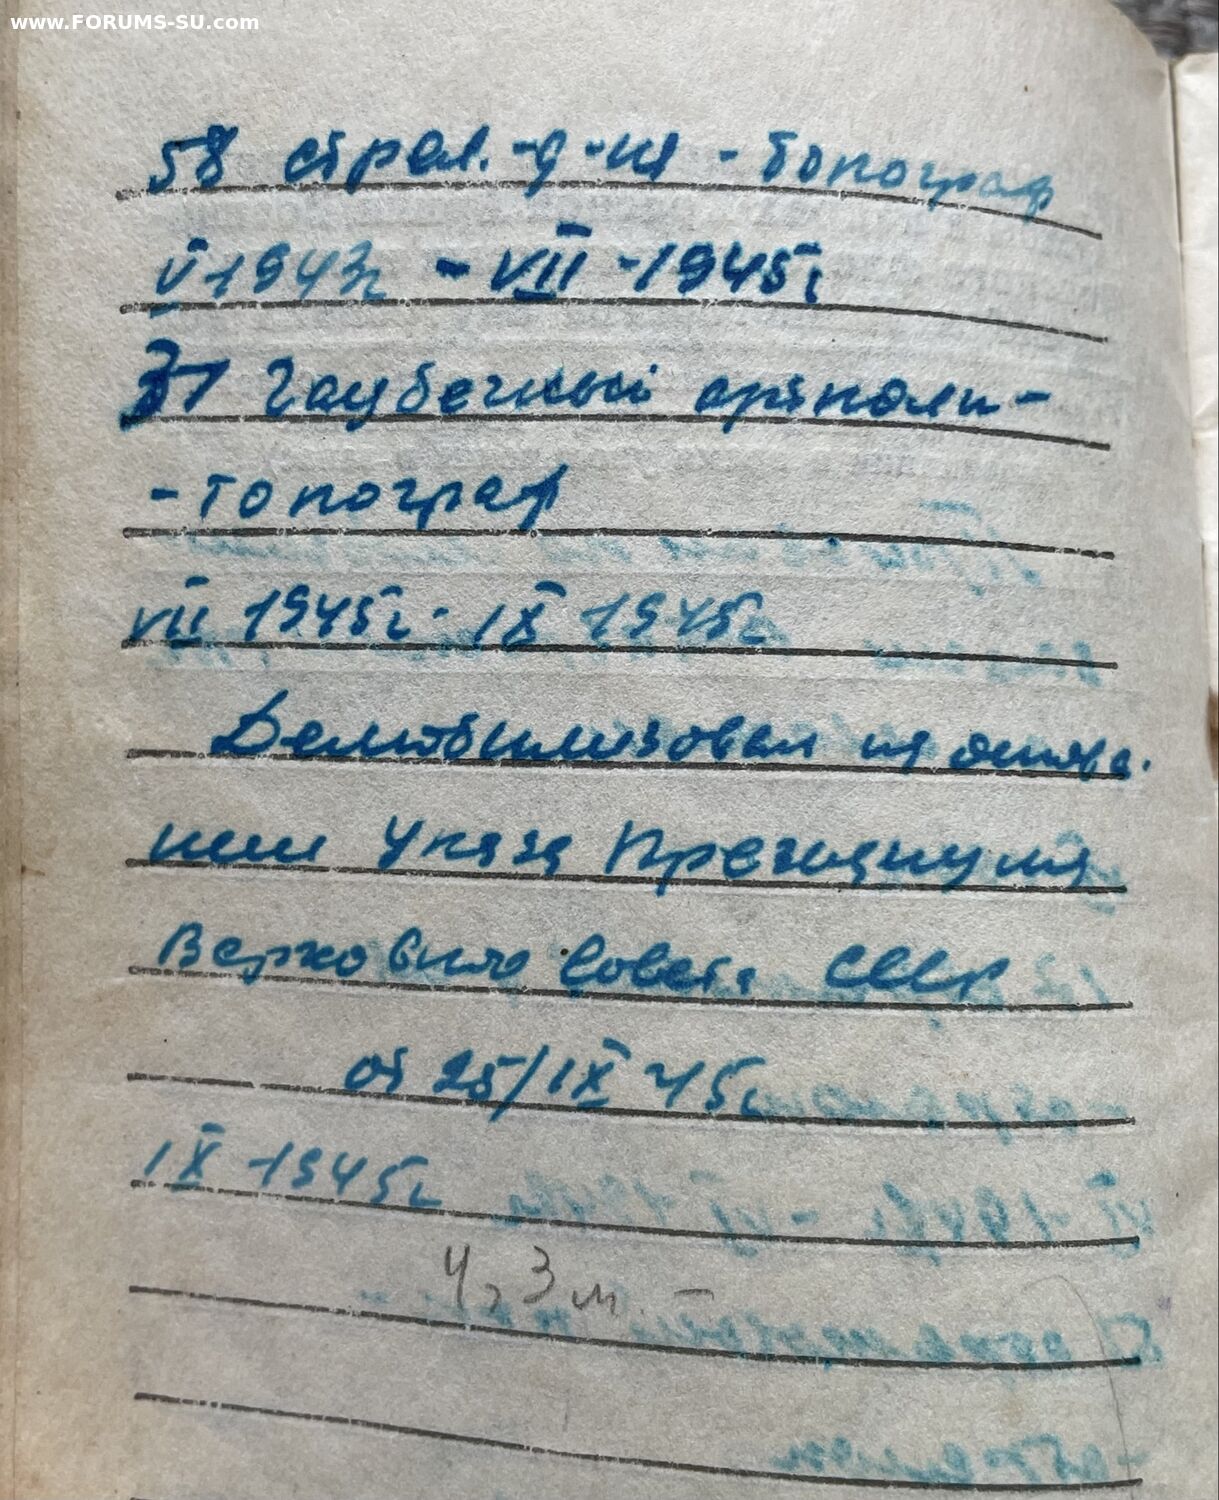 www.FORUMS-SU.com
58 стрел.-д-ия - топограф
V 1943г - VII - 1945г
31 Гаубечный артполк -
- топограф
VII 1945г - IX 1945г
Демобилизован на основа.
нии Указа Президиума
Верховного Совета СССР
от 25/IX 45г
IX 1945г
4г 3 м. -